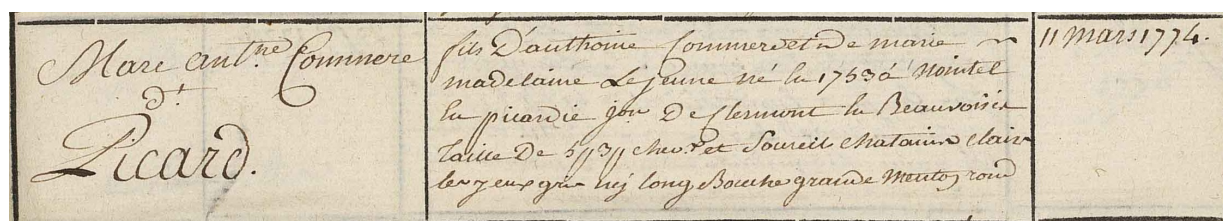 Marc ant.ne Commere
d.t
Picard.
fils D'anthoine Commere et de marie
madelaine Le jeune né En 1753 à Nointel
En picardie jon De Clermont En Beauvoisin
Taille De 5 // 3 // chev.x et Soureil chatains clair
les yeux gris néz long Bouche grande Menton rond
11 mars 1774.